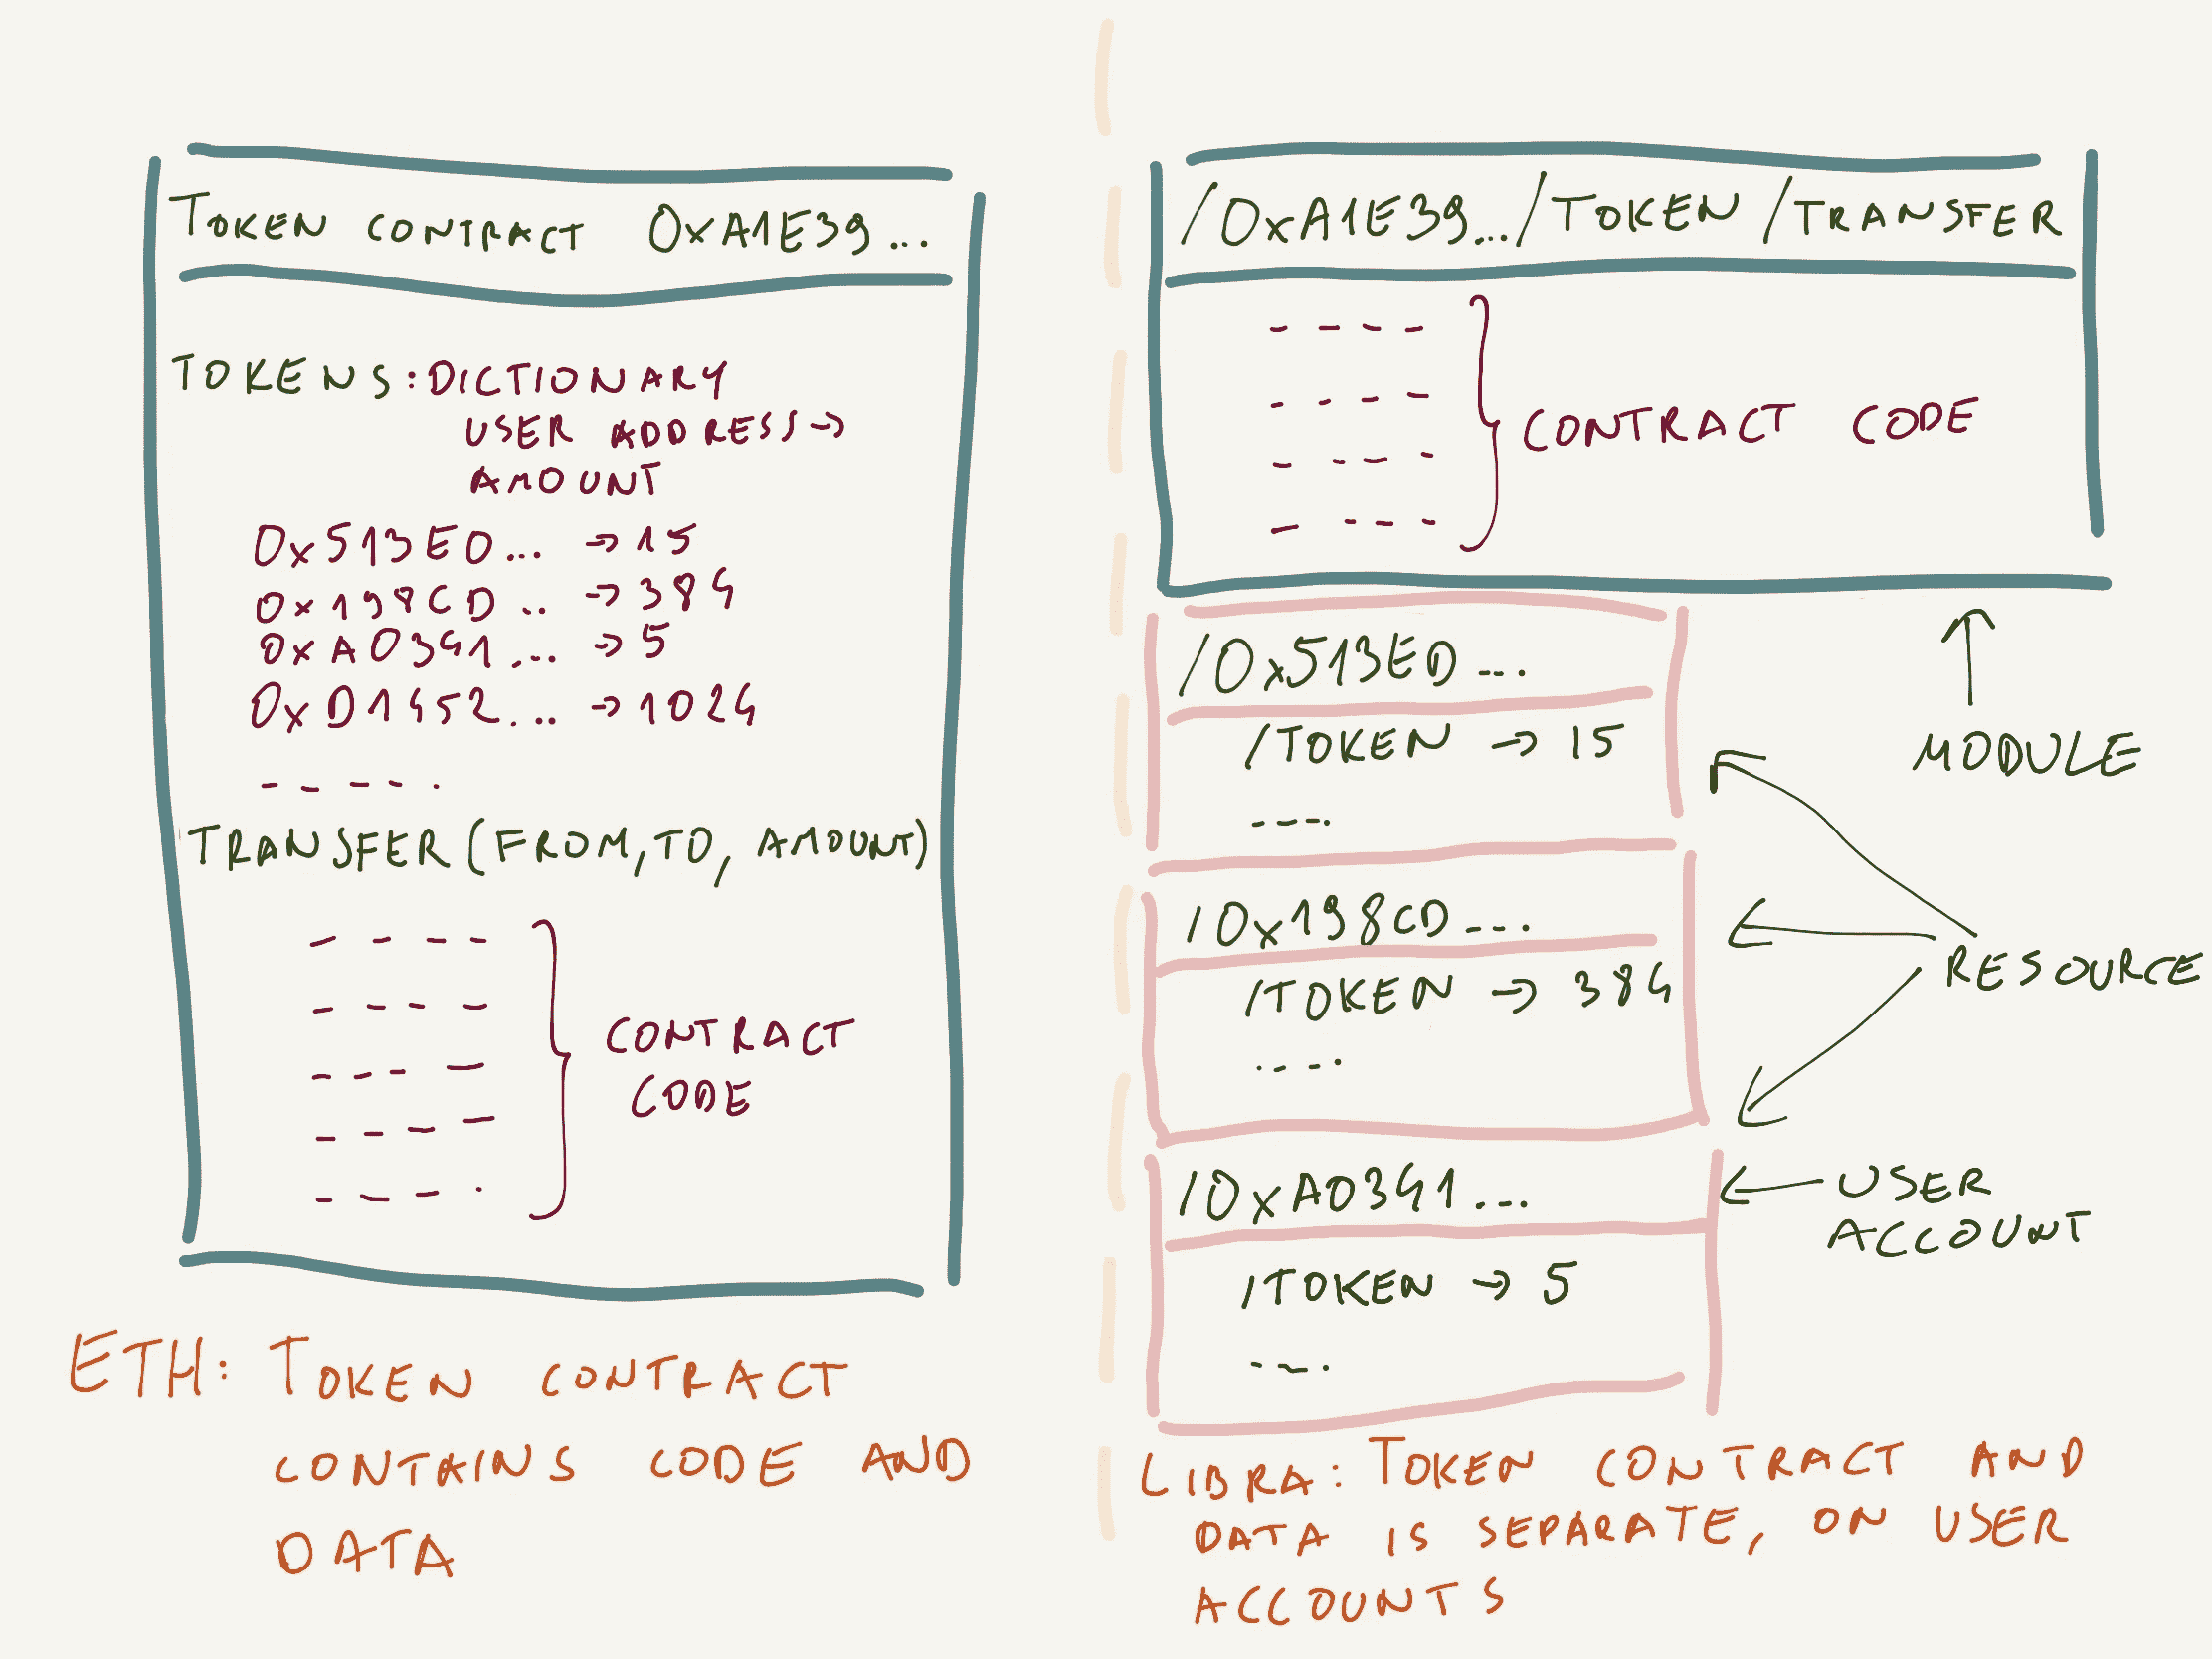 TOKEN CONTRACT 0xA1E39...
TOKENS: DICTIONARY
USER ADDRESS →
AMOUNT
0x513ED... → 15
0x198CD .. → 384
0xA0341.... → 5
0xD1452... → 1024
TRANSFER (FROM, TO, AMOUNT)
CONTRACT
CODE
ETH: TOKEN CONTRACT
CONTAINS CODE AND
DATA
/0xA1E39.../TOKEN/TRANSFER
CONTRACT CODE
MODULE
/0x513ED...
/TOKEN → 15
/0x198CD...
/TOKEN → 384
RESOURCE
/0xA0341...
/TOKEN → 5
USER
ACCOUNT
LIBRA: TOKEN CONTRACT AND
DATA IS SEPARATE, ON USER
ACCOUNTS